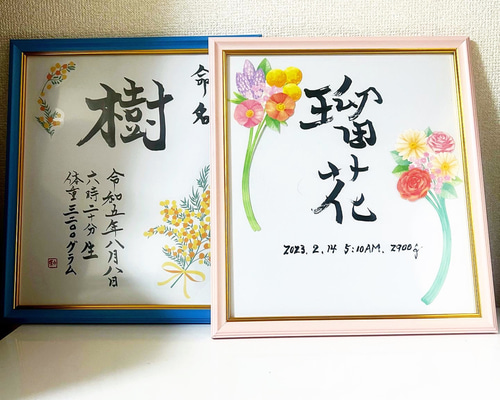 命名
樹
令和五年八月八日
六時二十分生
体重三二〇〇グラム
瑠花
2023.2.14 5:10AM. 2900g